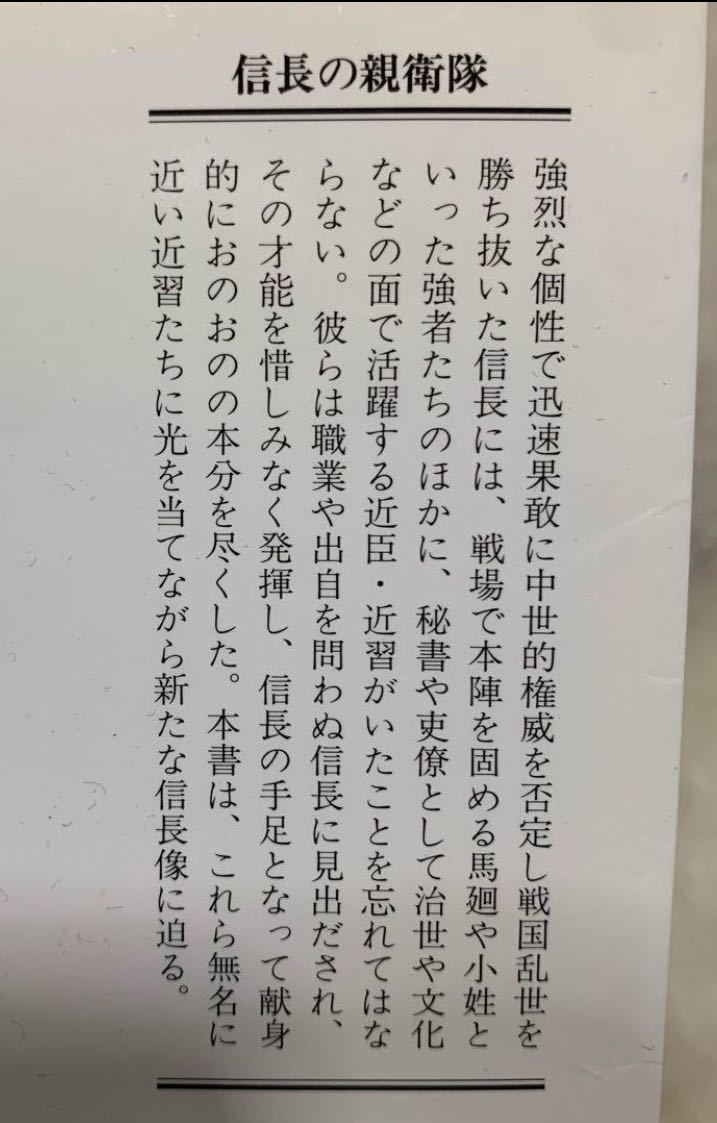 信長の親衛隊
強烈な個性で迅速果敢に中世的権威を否定し戦国乱世を
勝ち抜いた信長には、戦場で本陣を固める馬廻や小姓と
いった強者たちのほかに、秘書や吏僚として治世や文化
などの面で活躍する近臣・近習がいたことを忘れてはな
らない。彼らは職業や出自を問わぬ信長に見出だされ、
その才能を惜しみなく発揮し、信長の手足となって献身
的におのおのの本分を尽くした。本書は、これら無名に
近い近習たちに光を当てながら新たな信長像に迫る。